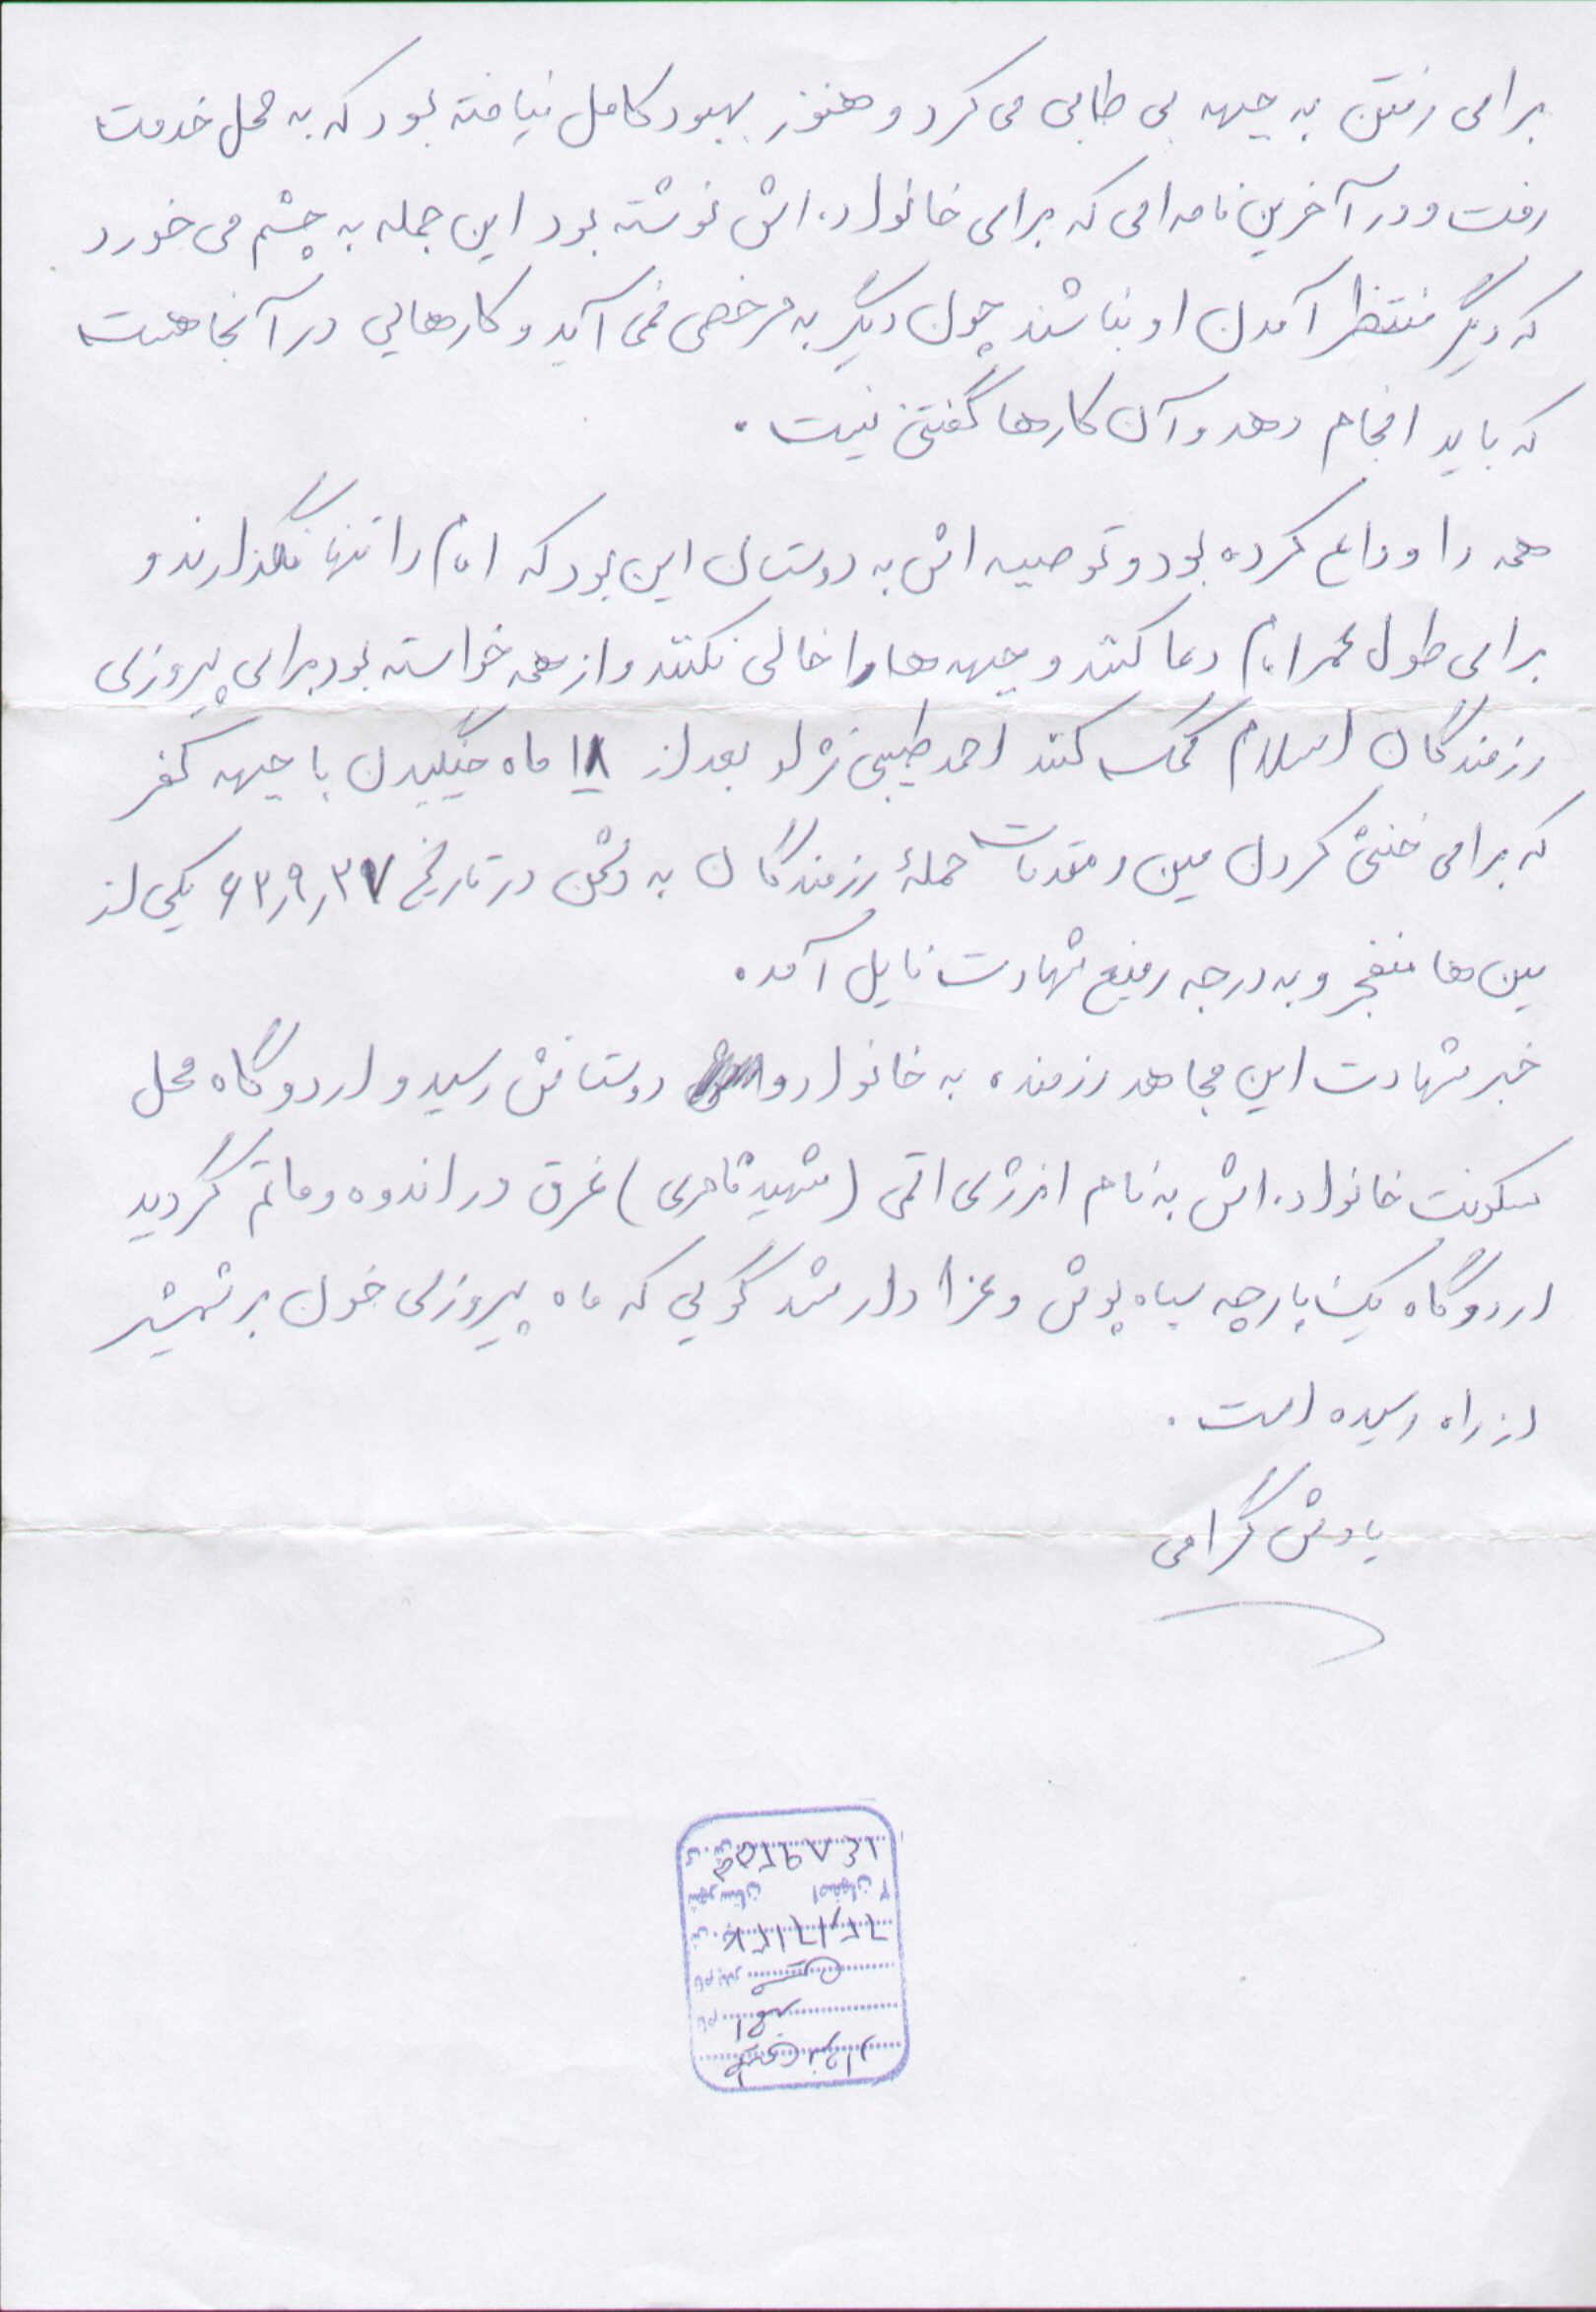 برای رفتن به جبهه بی طابی می کرد و هنوز بهبود کامل نیافته بود که به محل خدمت
رفت و در آخرین نامه ای که برای خانواده اش نوشته بود این جمله به چشم می خورد
که دیگر منتظر آمدن او نباشند چون دیگر به مرخصی نمی آید و کارهایی در آنجا هست
که باید انجام دهد و آن کارها گفتنی نیست.
همه را وداع کرده بود و توصیه اش به دوستان این بود که امام را تنها نگذارند و
برای طول عمر امام دعا کنند و جبهه ها را خالی نکنند و از همه خواسته بود برای پیروزی
رزمندگان اسلام کمک کنند احمد طبیبی نژاد بعد از ۱۸ ماه جنگیدن با جبهه کفر
که برای خنثی کردن مین و مقدمات حملهٔ رزمندگان به دشمن در تاریخ ۶۳٫۹٫۲۷ یکی از
مین ها منفجر و به درجه رفیع شهادت نایل آمد.
خبر شهادت این مجاهد رزمنده به خانواده و دوستانش رسید و اردوگاه محل
سکونت خانواده اش به نام انرژی اتمی (شهید ) غرق در اندوه و ماتم گردید
اردوگاه یکپارچه سیاه پوش و عزادار شد گویی که ماه پیروزی خون بر شمشیر
از راه رسیده است.
یادش گرامی
نام احمد
نام پدر
شهرستان اصفهان ۲